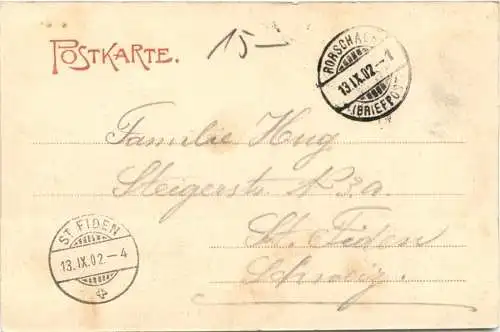 POSTKARTE.
15—
RORSCHACH
13.IX.02.-1
(BRIEFPOST
Familie Hug
Steigerstr. N 3.a
St. Fiden
Schweiz.
ST. FIDEN
13.IX.02.-4